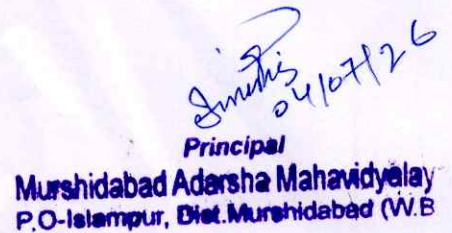 04/07/26
Principal
Murshidabad Adarsha Mahavidyalay
P.O-Islampur, Dist.Murshidabad (W.B